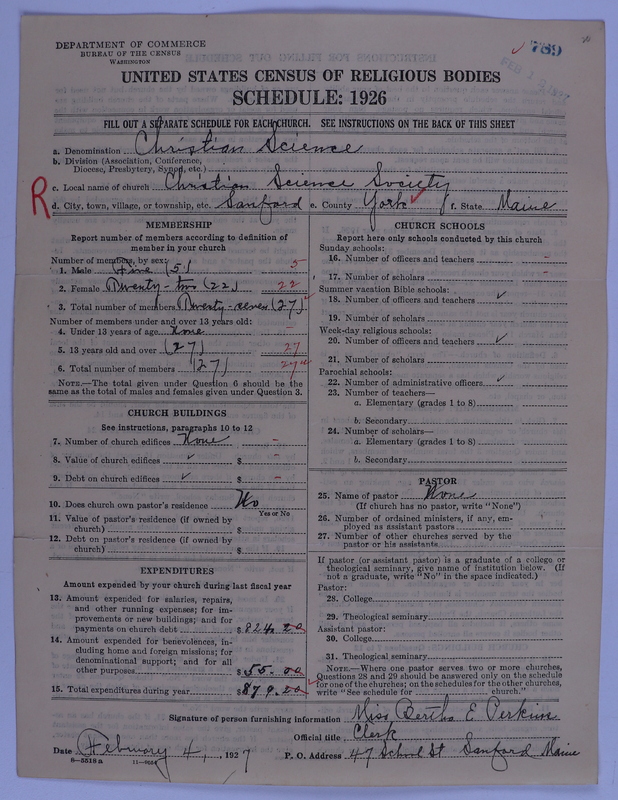 DEPARTMENT OF COMMERCE
BUREAU OF THE CENSUS
WASHINGTON
789
FEB 1927
UNITED STATES CENSUS OF RELIGIOUS BODIES
SCHEDULE: 1926
FILL OUT A SEPARATE SCHEDULE FOR EACH CHURCH. SEE INSTRUCTIONS ON THE BACK OF THIS SHEET
a. Denomination Christian Science
b. Division (Association, Conference, Diocese, Presbytery, Synod, etc.)
c. Local name of church Christian Science Society
R
d. City, town, village, or township, etc. Sanford e. County York f. State Maine
MEMBERSHIP
Report number of members according to definition of member in your church
Number of members, by sex:
1. Male Five (5) 5
2. Female Twenty-two (22) 22
3. Total number of members Twenty-seven (27)
Number of members under and over 13 years old:
4. Under 13 years of age None -
5. 13 years old and over (27) 27
6. Total number of members (27) 27
NOTE.—The total given under Question 6 should be the
same as the total of males and females given under Question 3.
CHURCH BUILDINGS
See instructions, paragraphs 10 to 12
7. Number of church edifices None -
8. Value of church edifices ✓ $ -
9. Debt on church edifices ✓ $ -
10. Does church own pastor's residence No
Yes or No
11. Value of pastor's residence (if owned by
church) $
12. Debt on pastor's residence (if owned by
church) $
EXPENDITURES
Amount expended by your church during last fiscal year
13. Amount expended for salaries, repairs,
and other running expenses; for im-
provements or new buildings; and for
payments on church debt $824.20
14. Amount expended for benevolences, in-
cluding home and foreign missions; for
denominational support; and for all
other purposes $55.00
15. Total expenditures during year $879.20
CHURCH SCHOOLS
Report here only schools conducted by this church
Sunday schools:
16. Number of officers and teachers -
17. Number of scholars -
Summer vacation Bible schools:
18. Number of officers and teachers ✓
19. Number of scholars
Week-day religious schools:
20. Number of officers and teachers ✓
21. Number of scholars
Parochial schools:
22. Number of administrative officers ✓
23. Number of teachers—
a. Elementary (grades 1 to 8)
b. Secondary
24. Number of scholars—
a. Elementary (grades 1 to 8)
b. Secondary
PASTOR
25. Name of pastor None
(If church has no pastor, write "None")
26. Number of ordained ministers, if any, em-
ployed as assistant pastors
27. Number of other churches served by the
pastor or his assistants
If pastor (or assistant pastor) is a graduate of a college or
theological seminary, give name of institution below. (If
not a graduate, write "No" in the space indicated.)
Pastor:
28. College
29. Theological seminary
Assistant pastor:
30. College
31. Theological seminary
NOTE.—Where one pastor serves two or more churches,
Questions 28 and 29 should be answered only on the schedule
for one of the churches; on the schedules for the other churches,
write "See schedule for church."
Signature of person furnishing information Miss Bertha E. Perkins
Official title Clerk
Date February 4, 1927 P. O. Address 47 School St Sanford Maine
8—5518 a